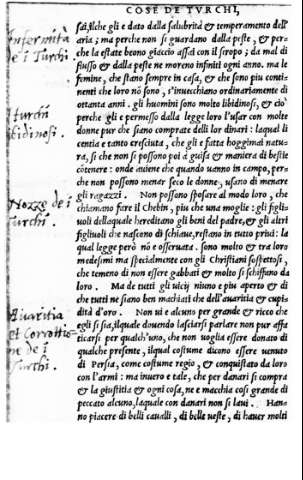 COSE DE TVRCHI,
sai, ilche gli e dato dalla salubrità & temperamento dell'
aria; ma perche non si guardano dalla peste, & per-
che la estate beono giaccio assai con il siropo; da mal di
flusso & dalla peste ne moreno infiniti ogni anno. ma le
femine, che stano sempre in casa, & che sono piu conti-
nenti che loro nõ sono, s'inuecchiano ordinariamente di
ottanta anni. gli huomini sono molto libidinosi, & cio'
perche gli e permesso dalla legge loro l'usar con molte
donne pur che siano comprate delli lor dinari: laqual li
centia e tanto cresciuta, che gli e fatta hoggimai natu-
ra, si che non si possono poi à guisa & maniera di bestie
cõtenere: onde auiene che quando uanno in campo, per-
che non possono menar seco le donne, usano di menare
gli ragazzi. Non possono sposare al modo loro, che
chiamano fare il Chebin, piu che una moglie: gli figli-
uoli dellaquale hereditano gli beni del padre, & gli altri
figliuoli che nasceno di schiaue, restano in tutto priui: la
qual legge però nõ è osseruata. sono molto & tra loro
medesimi ma spetialmente con gli Christiani sospettosi,
che temeno di non essere gabbati & molto si schiffano da
loro. Ma de tutti gli uicij niuno e piu aperto & di
che tutti ne siano ben machiati che dell'auaritia & cupi
dità d'oro. Non ui e alcuno per grande & ricco che
egli si sia, ilquale douendo lasciarsi parlare non pur affa
ticarsi per qualch'uno, che non uoglia essere donato di
qualche presente, ilqual costume dicono essere uenuto
di Persia, come costume regio, & conquistato da loro
con l'armi: ma inuero e tale, che per danari si compra
& la giustitia & ogni cosa, ne e macchia cosi grande di
peccato alcuno, laquale con danari non si laui. Han-
no piacere di belli caualli, di belle ueste, di hauer molti
Infermita
de i Turchi
Turchi
libidinosi.
Nozze de i
Turchi.
Auaritia
et Corrottio-
ne de i
Turchi.